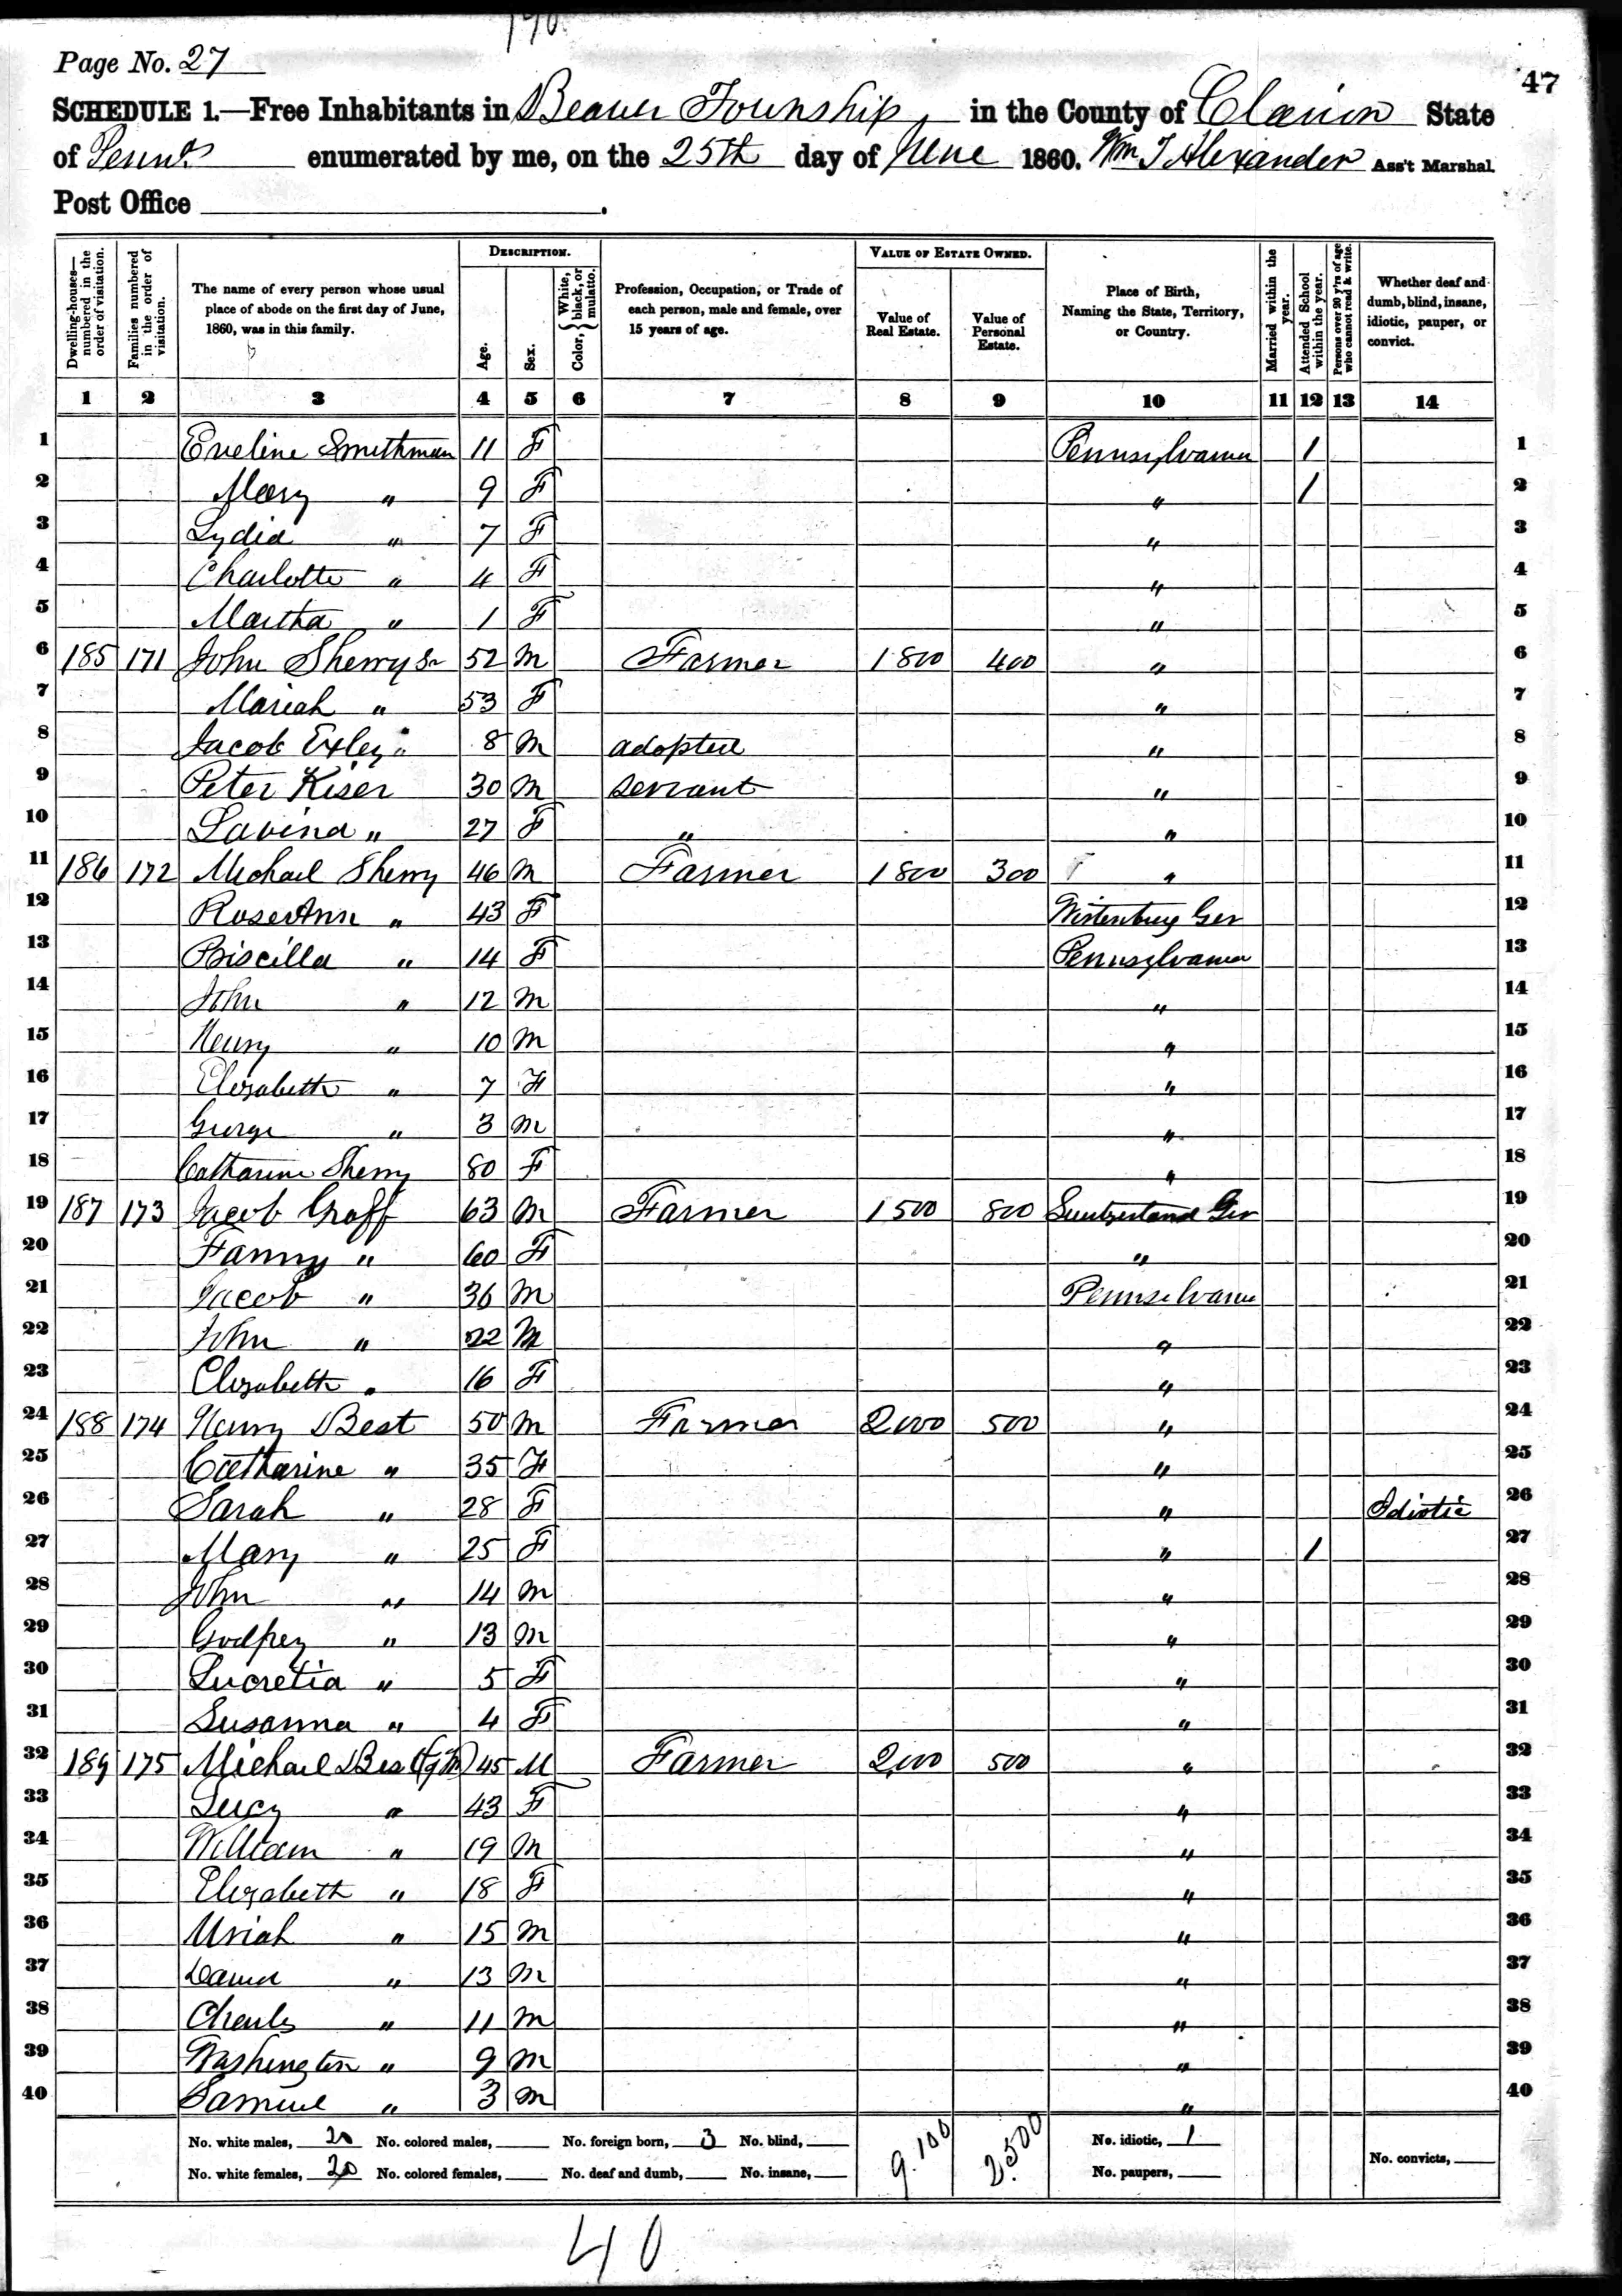 190
Page No. 27
47
SCHEDULE 1.—Free Inhabitants in Beaver Township in the County of Clarion State
of Penn<sup>a</sup> enumerated by me, on the 25th day of June 1860. Wm T Alexander Ass't Marshal.
Post Office .
Dwelling-houses—numbered in the order of visitation. Families numbered in the order of visitation. The name of every person whose usual place of abode on the first day of June, 1860, was in this family. DESCRIPTION. Age. Sex. Color, { White, black, or mulatto. Profession, Occupation, or Trade of each person, male and female, over 15 years of age. VALUE OF ESTATE OWNED. Value of Real Estate. Value of Personal Estate. Place of Birth, Naming the State, Territory, or Country. Married within the year. Attended School within the year. Persons over 20 y'rs of age who cannot read & write. Whether deaf and dumb, blind, insane, idiotic, pauper, or convict.
1 2 3 4 5 6 7 8 9 10 11 12 13 14
1 Eveline Smithman 11 F Pennsylvania 1 1
2 Mary " 9 F " 1 2
3 Lydia " 7 F " 3
4 Charlotte " 4 F " 4
5 Martha " 1 F " 5
6 185 171 John Sherry Sr 52 M Farmer 1800 400 " 6
7 Mariah " 53 F " 7
8 Jacob Exley " 8 M adopted " 8
9 Peter Kiser 30 M servant " 9
10 Lavina " 27 F " " 10
11 186 172 Michael Sherry 46 M Farmer 1800 300 " 11
12 RoseAnn " 43 F Wirtenburg Ger 12
13 Priscilla " 14 F Pennsylvania 13
14 John " 12 M " 14
15 Henry " 10 M " 15
16 Elizabeth " 7 F " 16
17 George " 3 M " 17
18 Catharine Sherry 80 F " 18
19 187 173 Jacob Graff 63 M Farmer 1500 800 Switzerland Ger 19
20 Fanny " 60 F " 20
21 Jacob " 36 M Pennsylvania 21
22 John " 22 M " 22
23 Elizabeth " 16 F " 23
24 188 174 Henry Best 50 M Farmer 2000 500 " 24
25 Catharine " 35 F " 25
26 Sarah " 28 F " Idiotic 26
27 Mary " 25 F " 1 27
28 John " 14 M " 28
29 Godfrey " 13 M " 29
30 Lucretia " 5 F " 30
31 Susanna " 4 F " 31
32 189 175 Michael Best 45 M Farmer 2000 500 " 32
33 Lucy " 43 F " 33
34 William " 19 M " 34
35 Elizabeth " 18 F " 35
36 Uriah " 15 M " 36
37 David " 13 M " 37
38 Charles " 11 M " 38
39 Washington " 9 M " 39
40 Samuel " 3 M " 40
No. white males, 20 No. colored males, No. foreign born, 3 No. blind, 9.100 2.500 No. idiotic, 1
No. white females, 20 No. colored females, No. deaf and dumb, No. insane, No. paupers, No. convicts,
40